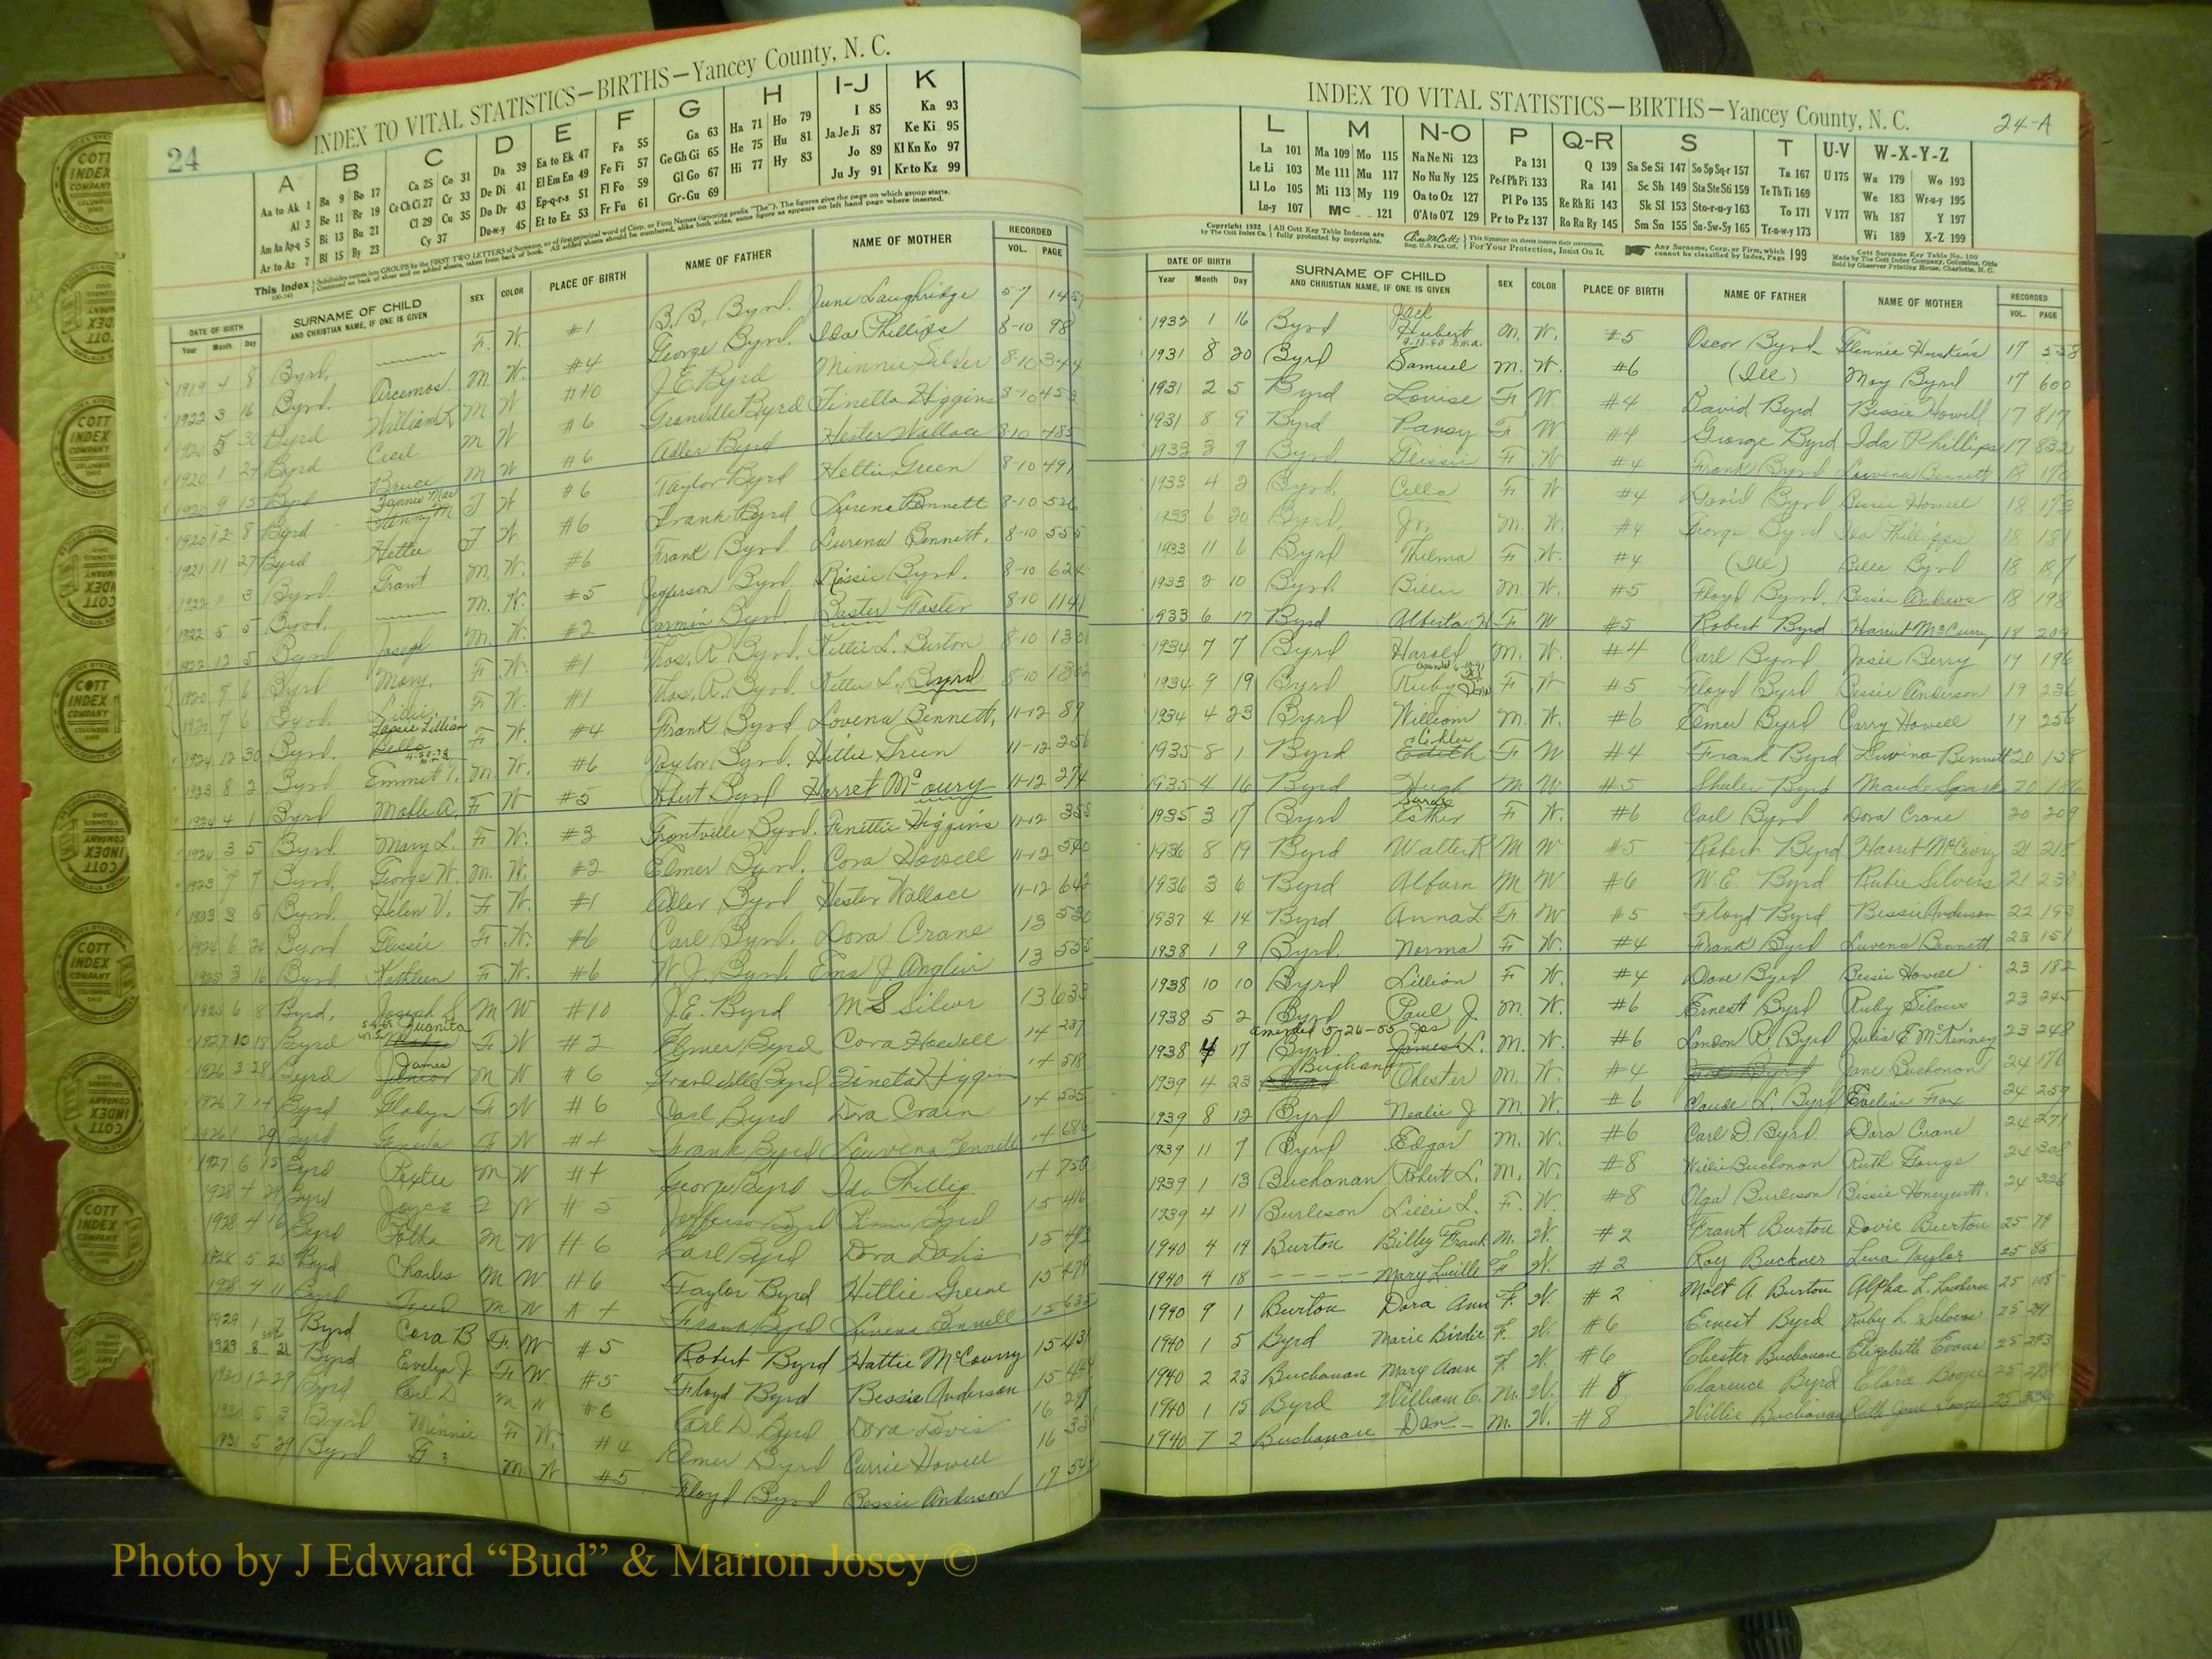 24
INDEX TO VITAL STATISTICS—BIRTHS—Yancey County, N. C.
A B C D E F G H I-J K
Aa to Ak 1 Ba 9 Bo 17 Ca 25 Co 31 Da 39 Ea to Ek 47 Fa 55 Ga 63 Ha 71 Ho 79 I 85 Ka 93
Al 3 Be 11 Br 19 Ce Ch Ci 27 Cr 33 De Di 41 El Em En 49 Fe Fi 57 Ge Gh Gi 65 He 75 Hu 81 Ja Je Ji 87 Ke Ki 95
Am An Ap-q 5 Bi 13 Bu 21 Cl 29 Cu 35 Do Dr 43 Ep-q-r-s 51 Fl Fo 59 Gl Go 67 Hi 77 Hy 83 Jo 89 Kl Kn Ko 97
Ar to Az 7 Bl 15 By 23 Cy 37 Du-w-y 45 Et to Ez 53 Fr Fu 61 Gr-Gu 69 Ju Jy 91 Kr to Kz 99
DATE OF BIRTH SURNAME OF CHILD SEX COLOR PLACE OF BIRTH NAME OF FATHER NAME OF MOTHER RECORDED
Year Month Day AND CHRISTIAN NAME, IF ONE IS GIVEN VOL. PAGE
1919 4 8 Byrd, F. W. #1 B. B. Byrd. June Laughridge 5-7
1922 3 16 Byrd. M W. #4 George Byrd. Ida Phillips 8-10 98
1920 5 30 Byrd William R M W #10 J. E. Byrd Minnie Silver 8-10 344
1920 1 Byrd Cecil M W #6 Granville Byrd Finetta Higgins 8-10 453
1920 9 15 Byrd Bruce M W #6 Adler Byrd Hester Wallace 8-10 485
1920 12 8 Byrd Fannie Mae F W #6 Taylor Byrd Hettie Green 8-10 491
1921 11 27 Byrd Hettie F W. #6 Frank Byrd Lurena Bennett 8-10 526
1922 3 Byrd Grant M. W. #6 Frank Byrd. Lurena Bennett. 8-10 555
1922 5 5 Byrd. M. W. #5 Jefferson Byrd Rossie Byrd. 8-10 624
1922 12 5 Byrd Joseph M. W. #2 Carmin Byrd Foster 8-10 1141
1920 7 6 Byrd Mary. F. W. #1 Thos. R. Byrd. Kellie L. Burton 8-10 1301
1920 7 6 Byrd Lillie F. W. #1 Thos. R. Byrd. Kellie L. Byrd 8-10 1302
1924 12 30 Byrd. Lillian F W. #4 Frank Byrd Lovena Bennett, 11-12 89
1923 8 2 Byrd Emmet T. M. W. #6 Taylor Byrd. Hillie Green 11-12 256
1924 4 1 Byrd Mable A. F W #5 Robert Byrd Harret McCoury 11-12 274
1924 3 5 Byrd. Mary L. F W. #3 Byrd. Higgins 11-12 355
1923 7 7 Byrd. George W. M. W. #2 Elmer Byrd. Cora Howell 11-12 540
1923 3 5 Byrd. Helen V. F W. #1 Adler Byrd Hester Wallace 11-12 642
1924 6 24 Byrd Flossie F. W. #6 Carl Byrd. Dora Crane 13 530
1925 3 16 Byrd Kathleen F W. #6 W. J. Byrd. Ema J Anglin 13 535
1925 6 8 Byrd, Joseph S M W #10 J. E. Byrd M S Silver 13 633
1927 10 18 Byrd Juanita F W #2 Elmer Byrd Cora Howell 14 237
1926 3 28 Byrd James M W #6 Granville Byrd Fineta Higgin 14 518
1926 7 14 Byrd Gladys F W #6 Carl Byrd Dora Crain 14 525
1926 1 29 Byrd Geneda F W #4 Frank Byrd Louvena Bennett 14 686
1927 6 15 Byrd Rextie M W #4 George Byrd Ida Phillip 14 750
1928 4 29 Byrd Joyce F W #5 Jefferson Byrd Byrd 15 416
1928 4 16 Byrd M W #6 Earl Byrd Dora Davis 15
1928 5 25 Byrd Charles M W #6 Taylor Byrd Hittie Greene 15 479
1928 4 11 Byrd Fred M W # 4 Frank Byrd Luvena Bennett 15 635
1929 1 7 Byrd Cora B F. W #5 Robert Byrd Hattie McCourry 15 431
1929 8 21 Byrd Evelyn J F W #5 Floyd Byrd Bessie Anderson 15
1930 12 29 Byrd Carl D M W #6 Carl D. Byrd Dora Davis 16
1930 5 3 Byrd Minnie F W. #4 Elmer Byrd Carrie Howell 16
1931 5 29 Byrd M. W #5 Floyd Byrd Bessie Anderson 17
INDEX TO VITAL STATISTICS—BIRTHS—Yancey County, N. C. 24-A
L M N-O P Q-R S T U-V W-X-Y-Z
La 101 Ma 109 Mo 115 Na Ne Ni 123 Pa 131 Q 139 Sa Se Si 147 So Sp Sq-r 157 Ta 167 U 175 Wa 179 Wo 193
Le Li 103 Me 111 Mu 117 No Nu Ny 125 Pe-f Ph Pi 133 Ra 141 Sc Sh 149 Sta Ste Sti 159 Te Th Ti 169 We 183 Wr-u-y 195
Ll Lo 105 Mi 113 My 119 Oa to Oz 127 Pl Po 135 Re Rh Ri 143 Sk Sl 153 Sto-r-u-y 163 To 171 V 177 Wh 187 Y 197
Lu-y 107 Mc 121 O'A to O'Z 129 Pr to Pz 137 Ro Ru Ry 145 Sm Sn 155 Su-Sv-Sy 165 Tr-u-w-y 173 Wi 189 X-Z 199
Copyright 1932 by The Cott Index Co. All Cott Key Table Indexes are fully protected by copyrights. For Your Protection, Insist On It. Any Surname, Corp. or Firm, which cannot be classified by Index, Page 199
DATE OF BIRTH SURNAME OF CHILD SEX COLOR PLACE OF BIRTH NAME OF FATHER NAME OF MOTHER RECORDED
Year Month Day AND CHRISTIAN NAME, IF ONE IS GIVEN VOL. PAGE
1932 1 16 Byrd Jack Hubert M. W. #5 Oscar Byrd Flennie Huskins 17 558
1931 8 20 Byrd Samuel M. W. #6 (Ill) May Byrd 17 600
1931 2 5 Byrd Louise F W #4 David Byrd Bessie Howell 17 817
1931 8 9 Byrd Pansy F W #4 George Byrd Ida Phillips 17 832
1933 3 9 Byrd Flessie F W #4 Frank Byrd Luvena Bennett 18 170
1933 4 2 Byrd, Cella F W #4 David Byrd Bessie Howell 18 173
1933 6 20 Byrd, Jr. M. W. #4 George Byrd Ida Phillips 18 181
1933 11 6 Byrd Thelma F W. #4 (Ill) Belle Byrd 18 187
1933 2 10 Byrd. Billie M W. #5 Floyd Byrd. Bessie Andrews 18 198
1933 6 17 Byrd Alberta H F W #5 Robert Byrd Harriet McCurry 18 209
1934 7 7 Byrd Harold M. W. #4 Carl Byrd Josie Berry 19 196
1934 9 19 Byrd Ruby F W #5 Floyd Byrd Bessie Anderson 19 236
1934 4 23 Byrd William M. W. #6 Elmer Byrd Carry Howell 19 256
1935 8 1 Byrd Edith F W #4 Frank Byrd Luvina Bennett 20 158
1935 4 16 Byrd Hugh M W #5 Shuler Byrd Maude Spark 20 186
1935 3 17 Byrd Esther F W. #6 Carl Byrd Dora Crane 20 209
1936 8 19 Byrd Walter R M W #5 Robert Byrd Harriet McCurry 21 215
1936 3 6 Byrd Alfurn M W #6 W. E. Byrd Rubie Silvers 21 238
1937 4 14 Byrd Anna L F. W #5 Floyd Byrd Bessie Anderson 22 193
1938 1 9 Byrd. Norma F W. #4 Frank Byrd Luvena Bennett 23 151
1938 10 10 Byrd Lillian F W. #4 Dave Byrd Bessie Howell 23 182
1938 5 2 Byrd Paul J. M. W. #6 Ernest Byrd Ruby Silvers 23 245
amended 5-26-55 Jas
1938 4 17 Byrd. James L. M. W. #6 Landon R. Byrd Julia E McKinney 23 248
1939 4 23 Buchanan Chester M. W. #4 Jane Buchanan 24 176
1939 8 12 Byrd Nealie J M. W. #6 Claude L. Byrd Eveline Fox 24 259
1939 11 7 Byrd Edgar M. W. #6 Carl D. Byrd. Dora Crane 24 271
1939 1 13 Buchanan Robert L. M. W. #8 Willie Buchanan Ruth Gouge 24 308
1939 4 11 Burleson Lillie L. F. W. #8 Olga Burleson Bissie Honeycutt. 24 326
1940 4 14 Burton Billy Frank M. W. #2 Frank Burton Dovie Burton 25 79
1940 4 18 - - - - - Mary Lucille F W. #2 Roy Buckner Lena Taylor 25 85
1940 9 1 Burton Dora Ann F. W. #2 Molt A. Burton Alpha L. 25 108
1940 1 5 Byrd Marie Birdie F. W. #6 Ernest Byrd Ruby L Silvers 25
1940 2 23 Buchanan Mary Ann F. W. #6 Chester Buchanan Elizabeth Evans 25 243
1940 1 15 Byrd William C. M. W. #8 Clarence Byrd Clara Boone 25
1940 7 2 Buchanan Dan M. W. #8 Willie Buchanan Ruth 25
Photo by J Edward “Bud” & Marion Josey ©